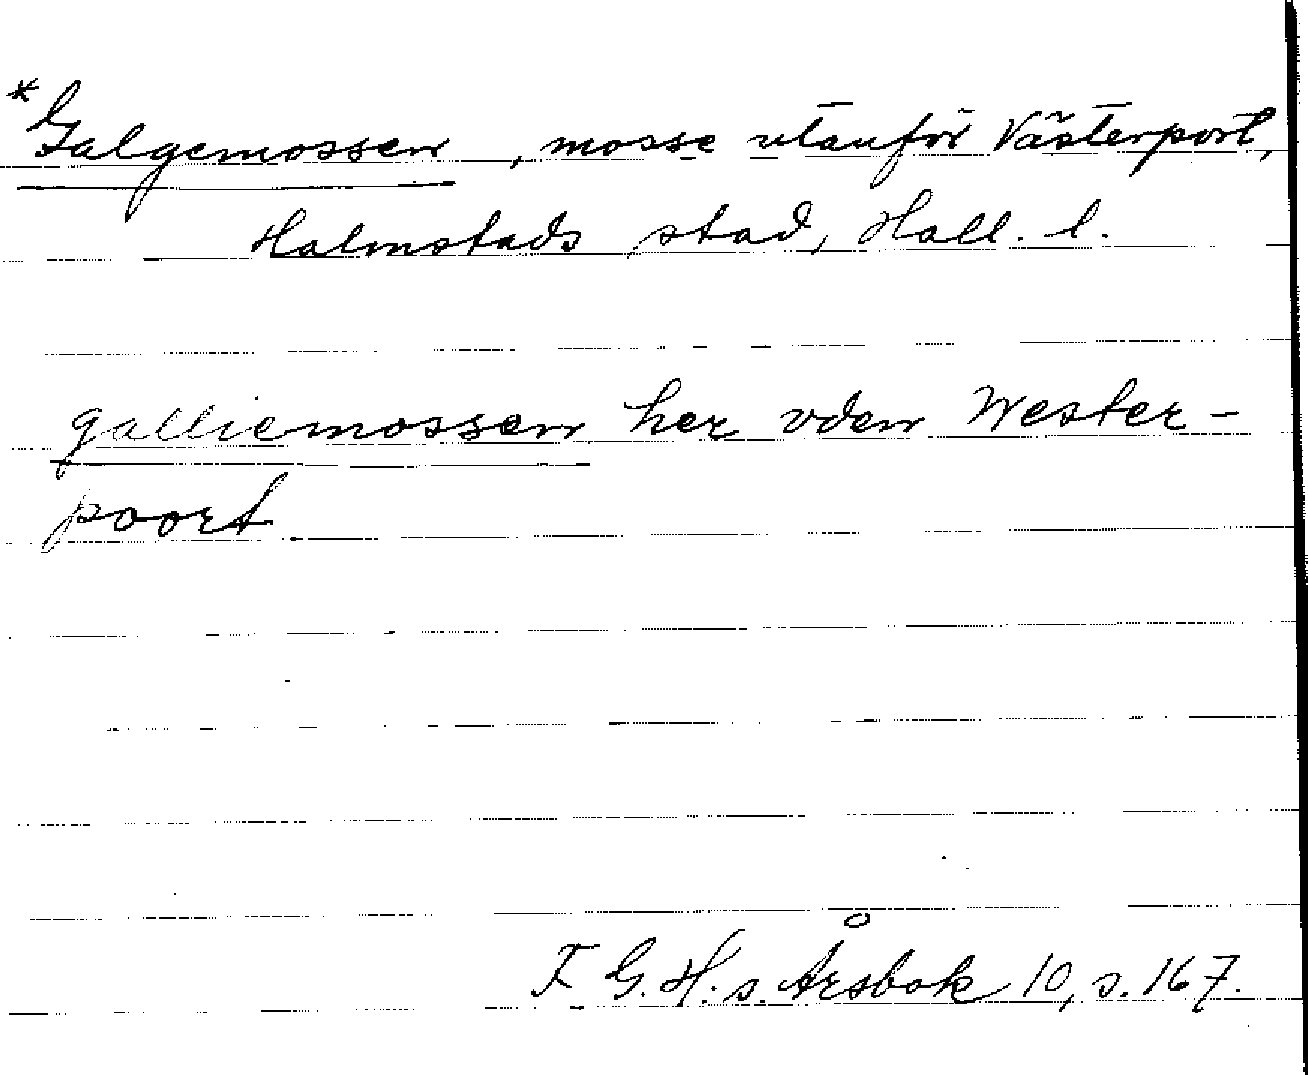 *Galgemossen, mosse utanför Västerport,
Halmstads stad, Hall. l.
galliemossen her vden Wester-
poort.
F. G. H. s. Årsbok 10, s. 167.